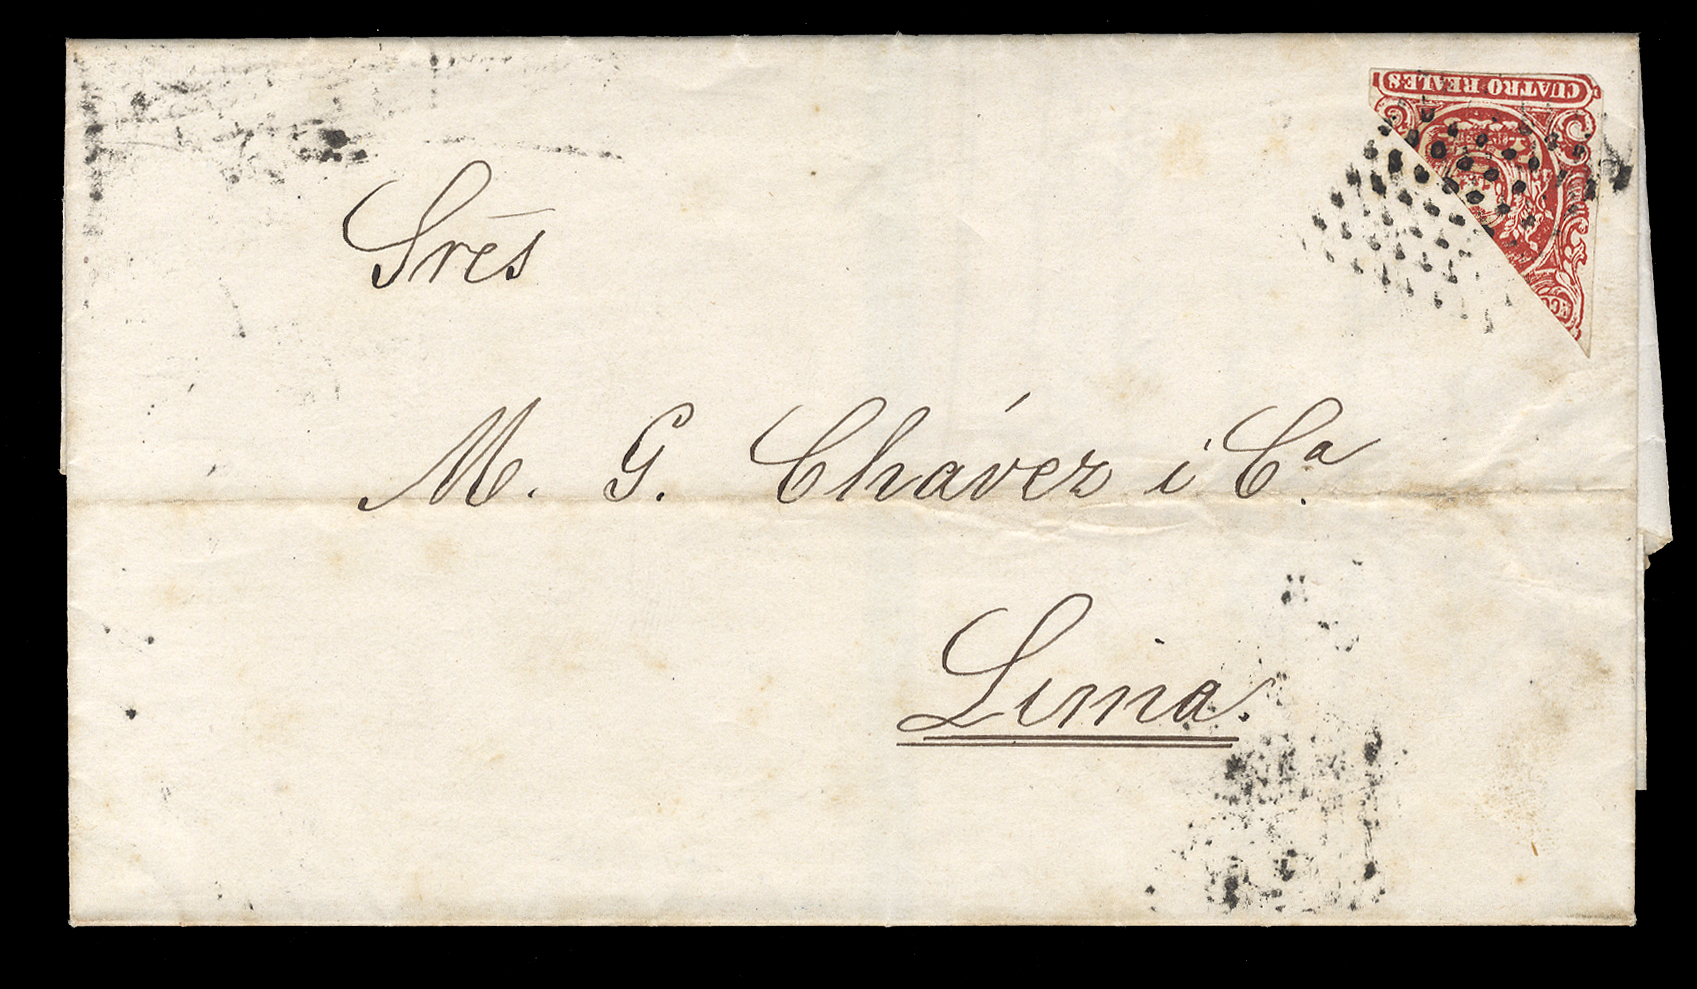 CUATRO REALES
Sres
M. G. Chávez i Ca.
Lima.